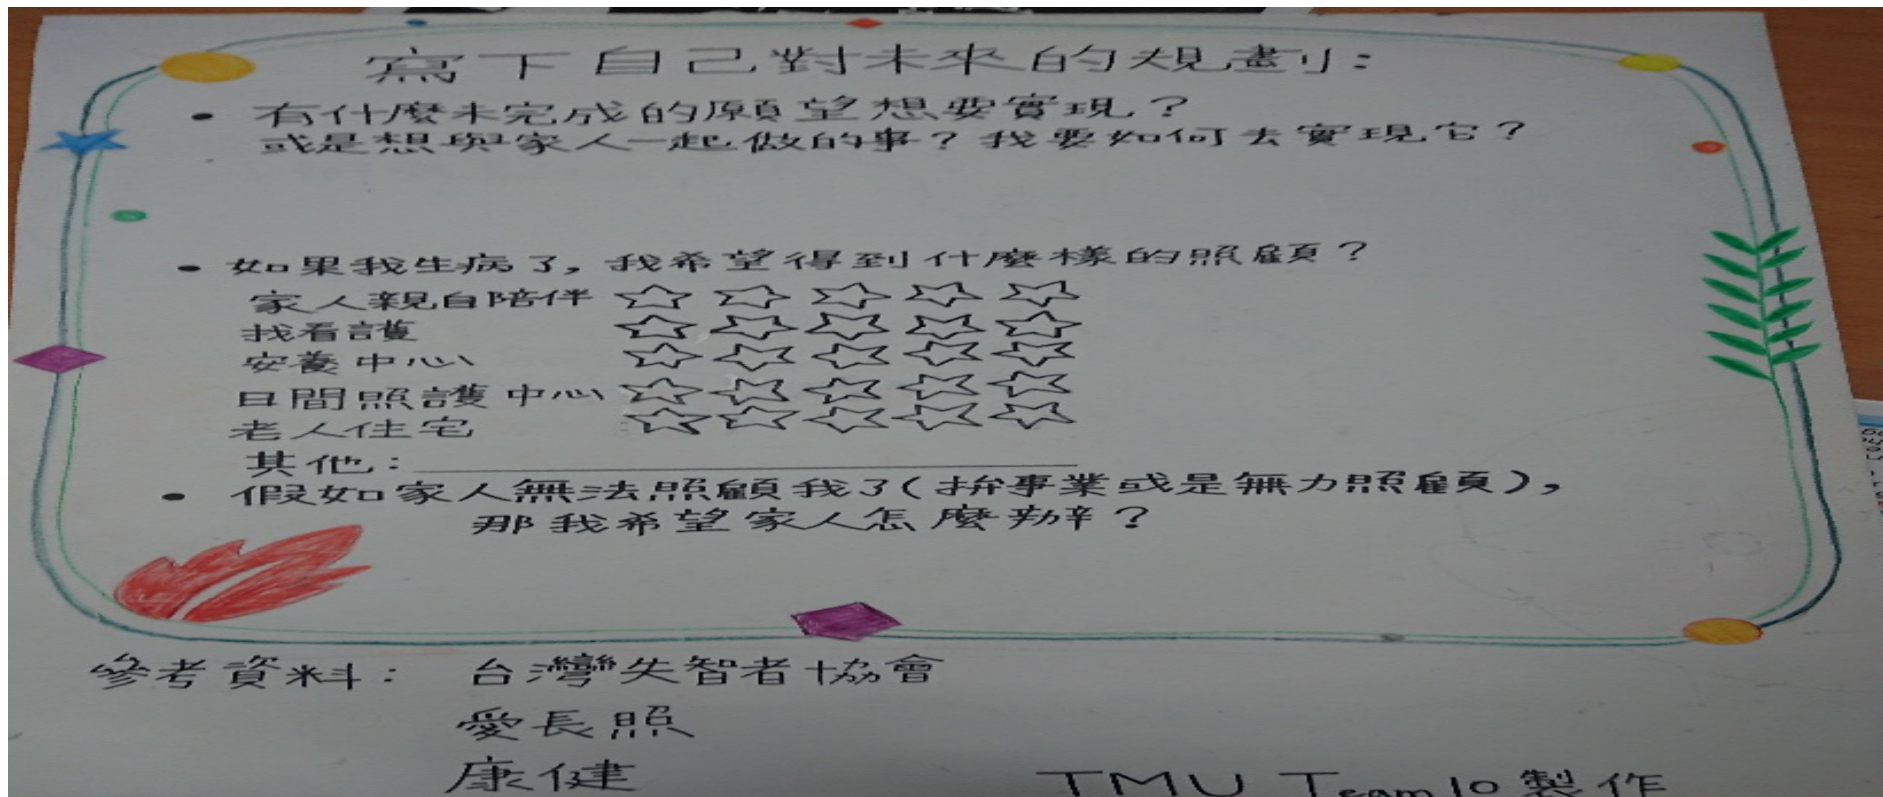 寫下自己對未來的規劃:
• 有什麼未完成的願望想要實現?
或是想與家人一起做的事?我要如何去實現它?
• 如果我生病了,我希望得到什麼樣的照顧?
家人親自陪伴 ☆ ☆ ☆ ☆ ☆
找看護 ☆ ☆ ☆ ☆ ☆
安養中心 ☆ ☆ ☆ ☆ ☆
日間照護中心 ☆ ☆ ☆ ☆ ☆
老人住宅 ☆ ☆ ☆ ☆ ☆
其他:
• 假如家人無法照顧我了(拚事業或是無力照顧),
那我希望家人怎麼辦?
參考資料: 台灣失智者協會
愛長照
康健
TMU Team 10 製作